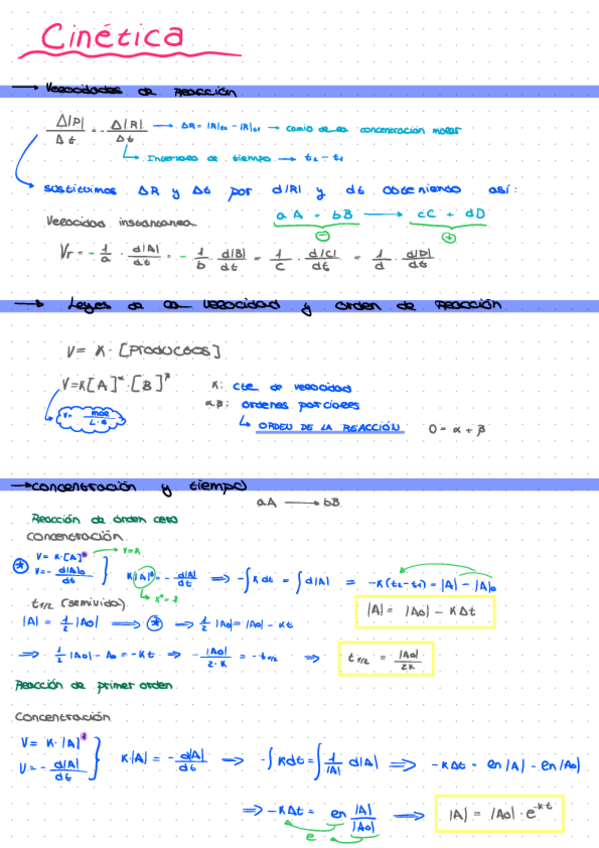 Cinética
→ Velocidades de Reacción
Δ|P|/Δt = - Δ|R|/Δt → ΔR = |R|t2 - |R|t1 → camio de la concentración molar
↳ Intervalo de tiempo → t2 - t1
sustituimos ΔR y Δt por d|R| y dt obteniendo así:
Velocidad instantanea
aA + bB → cC + dD
- +
Vr = - 1/a · d|A|/dt = - 1/b d|B|/dt = 1/c · d|C|/dt = 1/d · d|D|/dt
→ Leyes de la velocidad y orden de Reacción
V = K · [Productos]
V = K[A]^α · [B]^β
K: cte de velocidad
αβ: ordenes parciales
V = mol/L·s
↳ ORDEN DE LA REACCIÓN O = α + β
→ concentración y tiempo
aA → bB
Reacción de orden cero
concentración
V = K·[A]^0 → V=K
V = - d|A|/dt
K|A|^0 = - d|A|/dt ⇒ -∫Kdt = ∫d|A| = -K(t2-t1) = |A| - |A|0
↳ x^0 = 1
|A| = |A0| - KΔt
t1/2 (semivida)
|A| = 1/2 |A0| ⇒ * ⇒ 1/2 |A0| = |A0| - Kt
⇒ 1/2 |A0| - A0 = -Kt ⇒ - |A0|/2·K = -t1/2 ⇒ t1/2 = |A0|/2K
Reacción de primer orden
concentración
V = K·|A|^1
V = - d|A|/dt
K·|A| = - d|A|/dt → -∫Kdt = ∫ 1/|A| d|A| ⇒ -KΔt = ln|A| - ln|A0|
⇒ -KΔt = ln |A|/|A0| ⇒ |A| = |A0| · e^-Kt
e